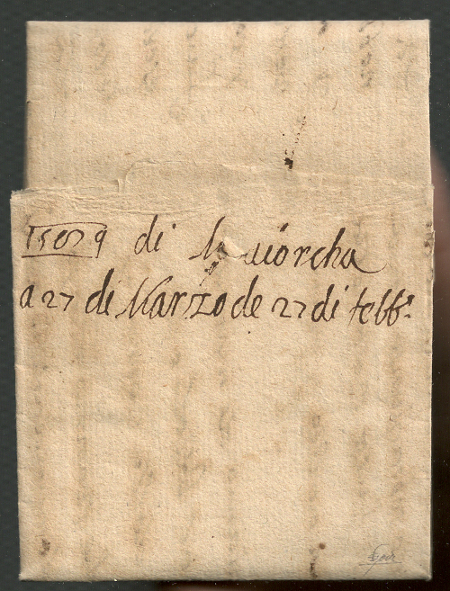 15079 di Maiorcha
a 27 di Marzo de 27 di febb.º